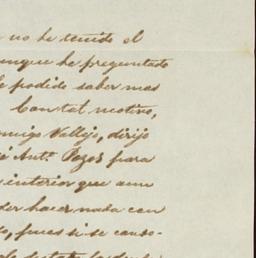 no he tenido el
unque he preguntado
podido saber mas
Con tal motivo,
amigo Vallejo, dirijo
Antº. Pozos para
interior que aun
der hacer nada con
, pues si se cano-